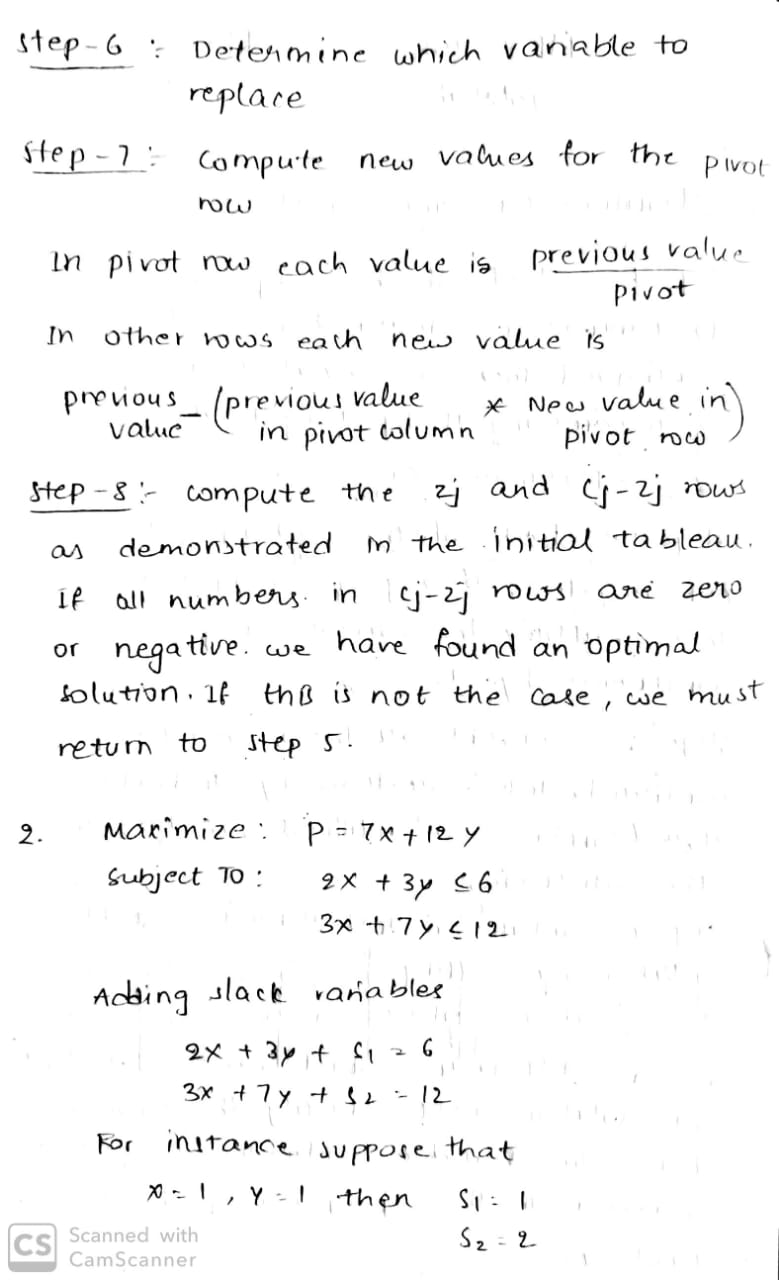 step-6 :- Determine which variable to
replace
step-7 :- Compute new values for the pivot
row
In pivot row each value is previous value
pivot
In other rows each new value is
previous value - (previous value in pivot column * New value in pivot row)
step-8 :- compute the zj and cj-zj rows
as demonstrated in the initial tableau.
if all numbers in cj-zj rows are zero
or negative. we have found an optimal
solution. If this is not the case, we must
return to step 5.
2. Maximize : P = 7x + 12y
Subject TO : 2x + 3y ≤ 6
3x + 7y ≤ 12
Adding slack variables
2x + 3y + S1 = 6
3x + 7y + S2 = 12
For instance suppose that
x = 1, y = 1 then S1 = 1
S2 = 2
CS Scanned with
CamScanner